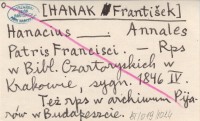 [HANAK František]
Hanacius —. Annales
Patris Francisci. — Rps
w Bibl. Czartoryckich w
Krakowie, sygn. 1846 IV.
Też rps w archiwum Pija-
rów w Budapeszcie.